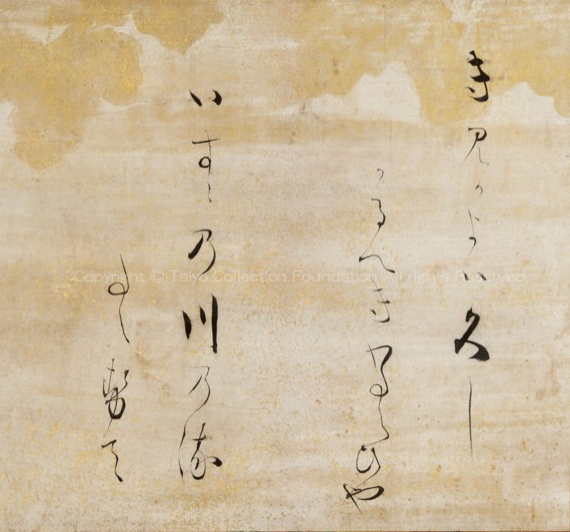 き見かよハ久し
かるへきわたらひや
いすゝ乃川乃流
勢て
Copyright © Collection Foundation, All rights Reserved